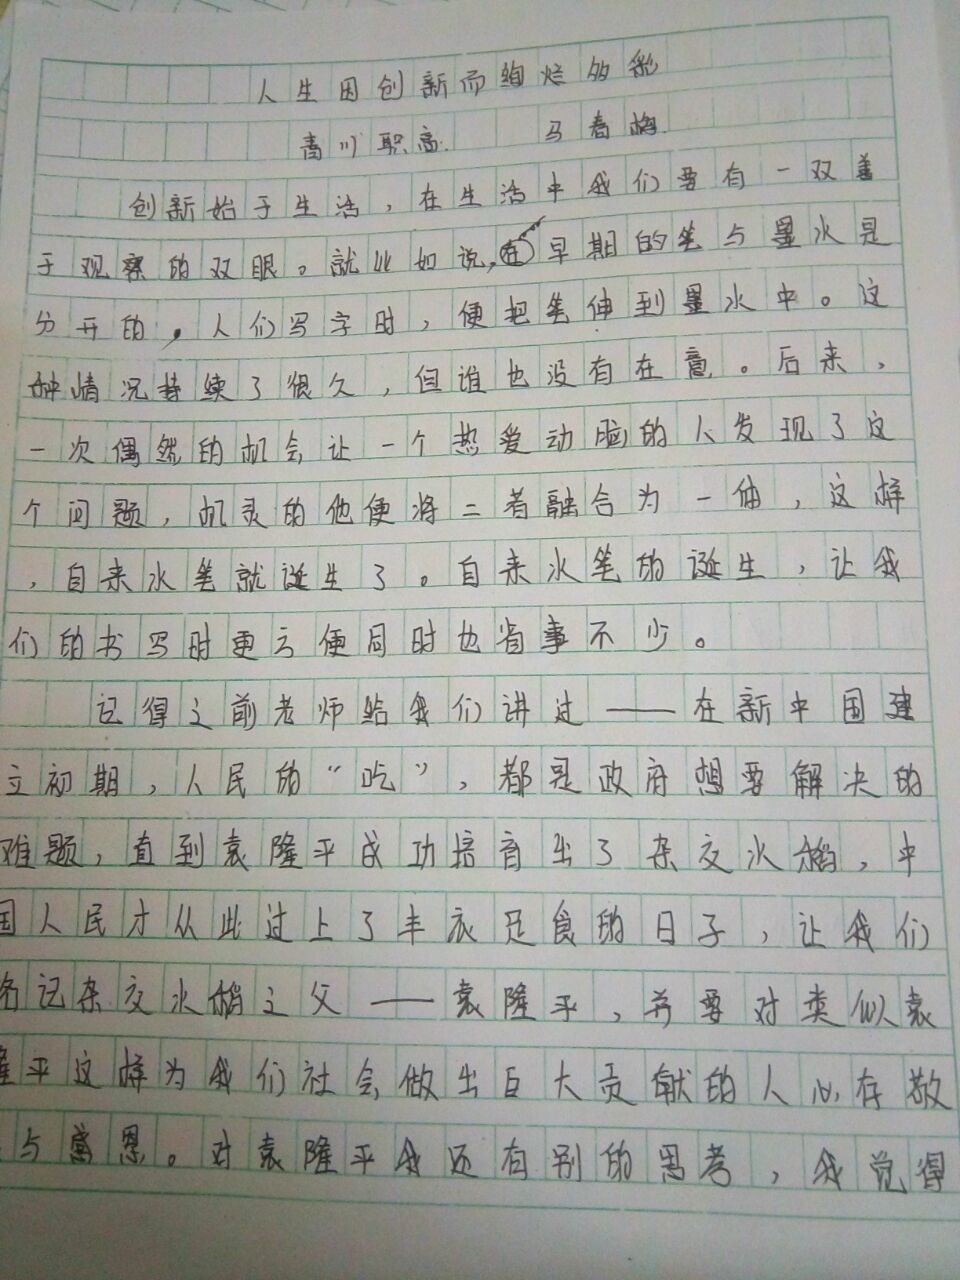 人生因创新而绚烂多彩
青川职高 马春梅
创新始于生活，在生活中我们要有一双善
于观察的双眼。就比如说，在早期的笔与墨水是
分开的，人们写字时，便把笔伸到墨水中。这
种情况持续了很久，但谁也没有在意。后来，
一次偶然的机会让一个热爱动脑的人发现了这
个问题，机灵的他便将二者融合为一体，这样
，自来水笔就诞生了。自来水笔的诞生，让我
们的书写时更方便同时也省事不少。
记得之前老师给我们讲过——在新中国建
立初期，人民的“吃”，都是政府想要解决的
难题，直到袁隆平成功培育出了杂交水稻，中
国人民才从此过上了丰衣足食的日子，让我们
铭记杂交水稻之父——袁隆平，并要对类似袁
隆平这样为我们社会做出巨大贡献的人心存敬
与感恩。对袁隆平我还有别的思考，我觉得